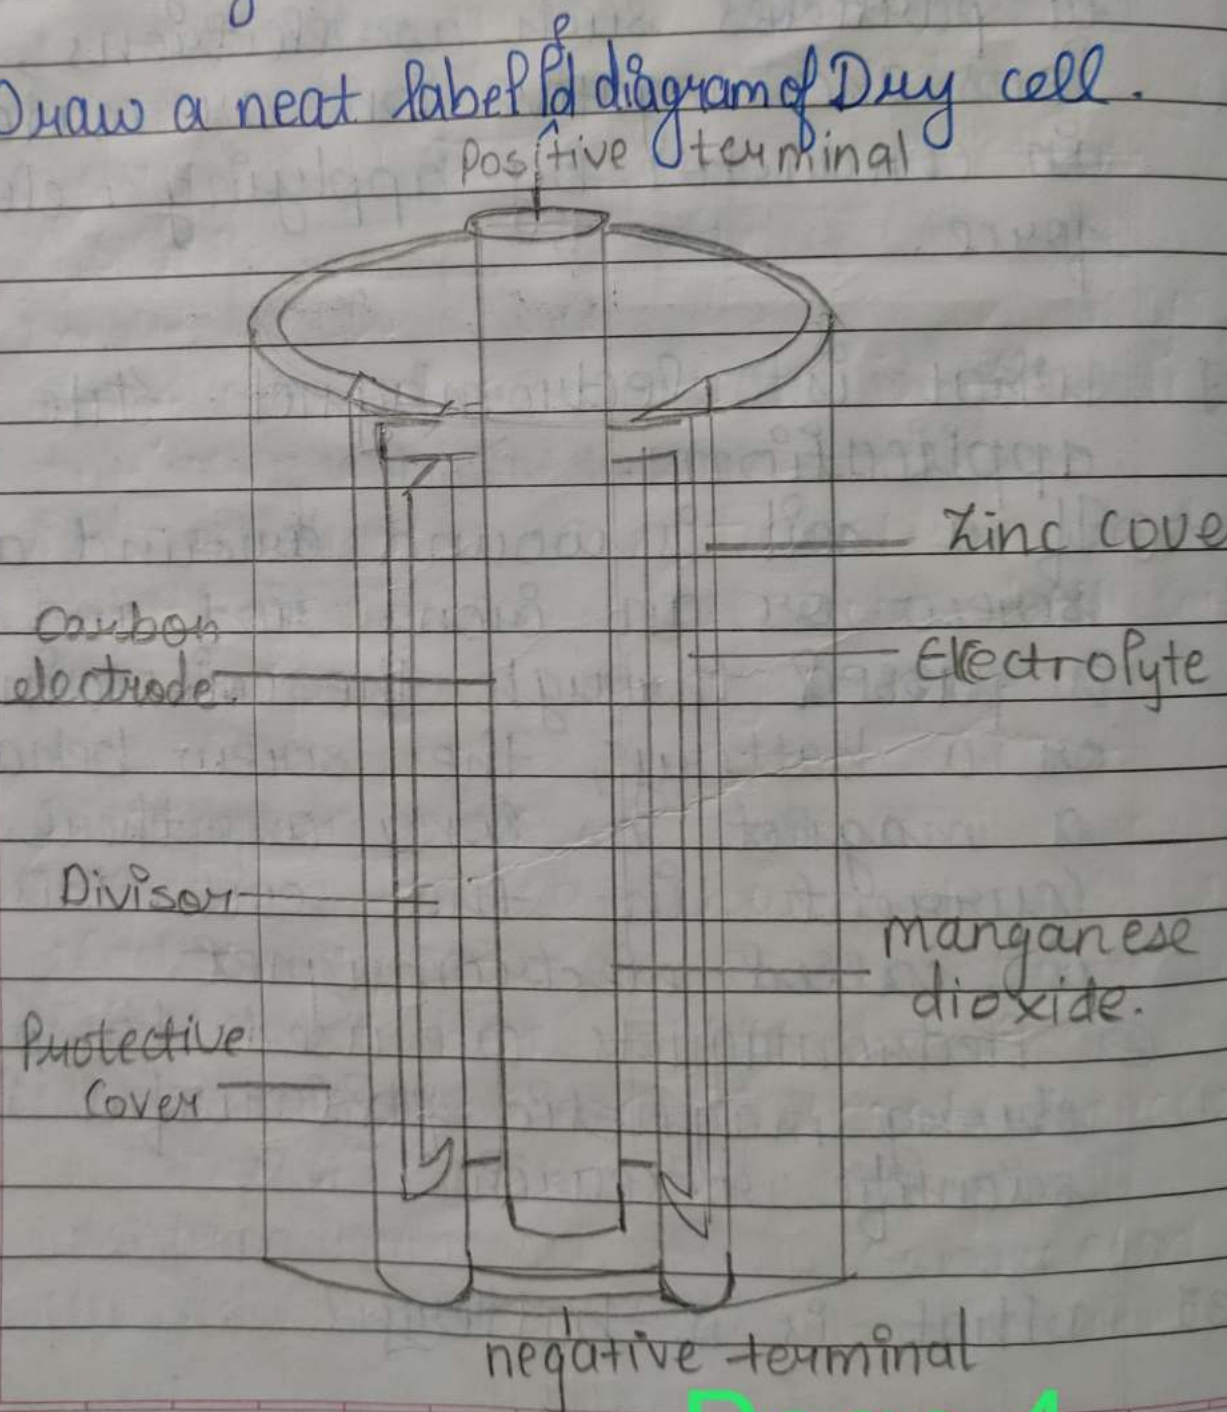 Draw a neat labelled diagram of Dry cell.
Positive terminal
Zinc cove
Carbon
electrode.
Electrolyte
Divisor
Manganese
dioxide.
Protective
Cover
negative terminal